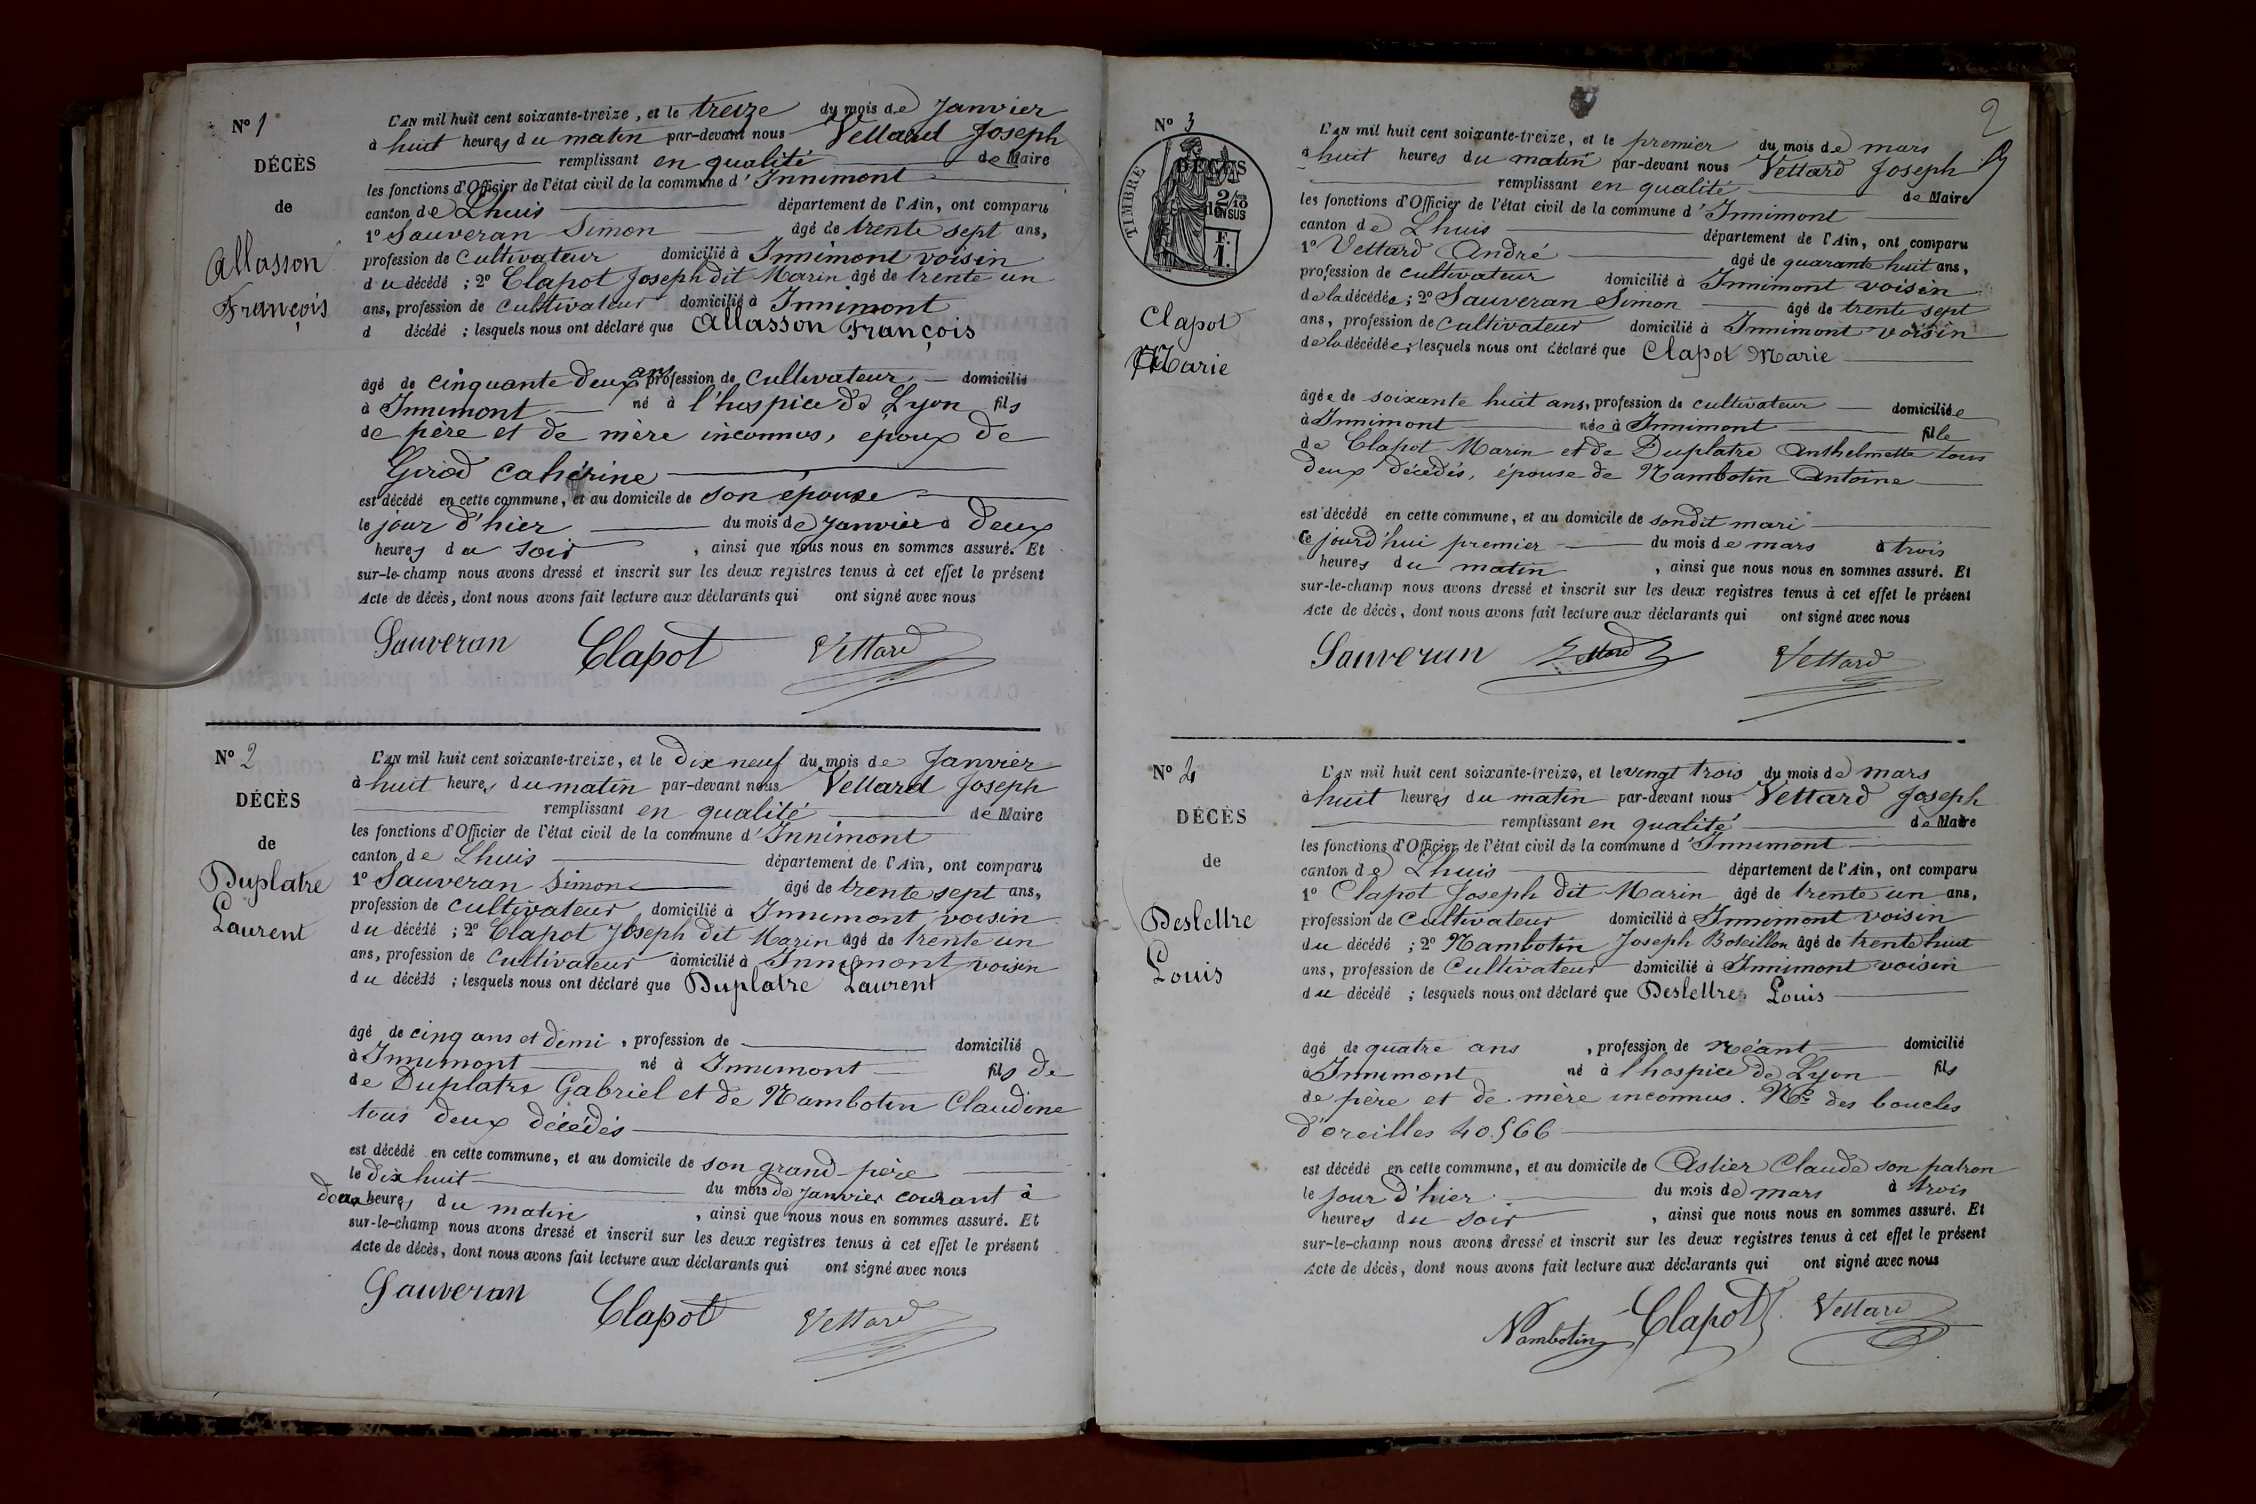 N° 1
DÉCÈS
de
Allasson
François
L'AN mil huit cent soixante-treize, et le treize du mois de Janvier
à huit heures du matin par-devant nous Vettard Joseph
remplissant en qualité de Maire
les fonctions d'Officier de l'état civil de la commune d'Innimont
canton de Lhuis département de l'Ain, ont comparu
1° Sauveran Simon âgé de trente sept ans,
profession de cultivateur domicilié à Innimont voisin
du décédé ; 2° Clapot Joseph dit Marin âgé de trente un
ans, profession de cultivateur domicilié à Innimont
d décédé ; lesquels nous ont déclaré que Allasson François
âgé de cinquante deux ans profession de cultivateur domicilié
à Innimont né à l'hospice de Lyon fils
de père et de mère inconnus, époux de
Girod Cahérine
est décédé en cette commune, et au domicile de son épouse
le jour d'hier du mois de Janvier à deux
heures du soir , ainsi que nous nous en sommes assuré. Et
sur-le-champ nous avons dressé et inscrit sur les deux registres tenus à cet effet le présent
Acte de décès, dont nous avons fait lecture aux déclarants qui ont signé avec nous
Sauveran Clapot Vettard
N° 2
DÉCÈS
de
Duplatre
Laurent
L'AN mil huit cent soixante-treize, et le dix neuf du mois de Janvier
à huit heures du matin par-devant nous Vettard Joseph
remplissant en qualité de Maire
les fonctions d'Officier de l'état civil de la commune d'Innimont
canton de Lhuis département de l'Ain, ont comparu
1° Sauveran Simon âgé de trente sept ans,
profession de cultivateur domicilié à Innimont voisin
du décédé ; 2° Clapot Joseph dit Marin âgé de trente un
ans, profession de cultivateur domicilié à Innimont voisin
du décédé ; lesquels nous ont déclaré que Duplatre Laurent
âgé de cinq ans et demi , profession de domicilié
à Innimont né à Innimont fils de
de Duplatre Gabriel et de Nambotin Claudine
tous deux décédés
est décédé en cette commune, et au domicile de son grand-père
le dix huit du mois de Janvier courant à
deux heures du matin , ainsi que nous nous en sommes assuré. Et
sur-le-champ nous avons dressé et inscrit sur les deux registres tenus à cet effet le présent
Acte de décès, dont nous avons fait lecture aux déclarants qui ont signé avec nous
Sauveran Clapot Vettard
2
N° 3
DÉCÈS
TIMBRE
2/10
EN SUS
F.
1.
Clapot
Marie
L'AN mil huit cent soixante-treize, et le premier du mois de mars
à huit heures du matin par-devant nous Vettard Joseph
remplissant en qualité de Maire
les fonctions d'Officier de l'état civil de la commune d'Innimont
canton de Lhuis département de l'Ain, ont comparu
1° Vettard André âgé de quarante huit ans,
profession de cultivateur domicilié à Innimont voisin
de la décédée ; 2° Sauveran Simon âgé de trente sept
ans, profession de cultivateur domicilié à Innimont voisin
de la décédée ; lesquels nous ont déclaré que Clapot Marie
âgée de soixante huit ans, profession de cultivateur domiciliée
à Innimont née à Innimont fille
de Clapot Marin et de Duplatre Anthelmette tous
deux décédés, épouse de Nambotin Antoine
est décédé en cette commune, et au domicile de son dit mari
ce jourd'hui premier du mois de mars à trois
heures du matin , ainsi que nous nous en sommes assuré. Et
sur-le-champ nous avons dressé et inscrit sur les deux registres tenus à cet effet le présent
Acte de décès, dont nous avons fait lecture aux déclarants qui ont signé avec nous
Sauveran Vettard Vettard
N° 4
DÉCÈS
de
Deslettre
Louis
L'AN mil huit cent soixante-treize, et le vingt trois du mois de mars
à huit heures du matin par-devant nous Vettard Joseph
remplissant en qualité de Maire
les fonctions d'Officier de l'état civil de la commune d'Innimont
canton de Lhuis département de l'Ain, ont comparu
1° Clapot Joseph dit Marin âgé de trente un ans,
profession de cultivateur domicilié à Innimont voisin
du décédé ; 2° Nambotin Joseph Boteillon âgé de trente huit
ans, profession de cultivateur domicilié à Innimont voisin
du décédé ; lesquels nous ont déclaré que Deslettre Louis
âgé de quatre ans , profession de néant domicilié
à Innimont né à l'hospice de Lyon fils
de père et de mère inconnus. N° des boucles
d'oreilles 40.566
est décédé en cette commune, et au domicile de Astier Claude son patron
le jour d'hier du mois de mars à trois
heures du soir , ainsi que nous nous en sommes assuré. Et
sur-le-champ nous avons dressé et inscrit sur les deux registres tenus à cet effet le présent
Acte de décès, dont nous avons fait lecture aux déclarants qui ont signé avec nous
Nambotin Clapot Vettard